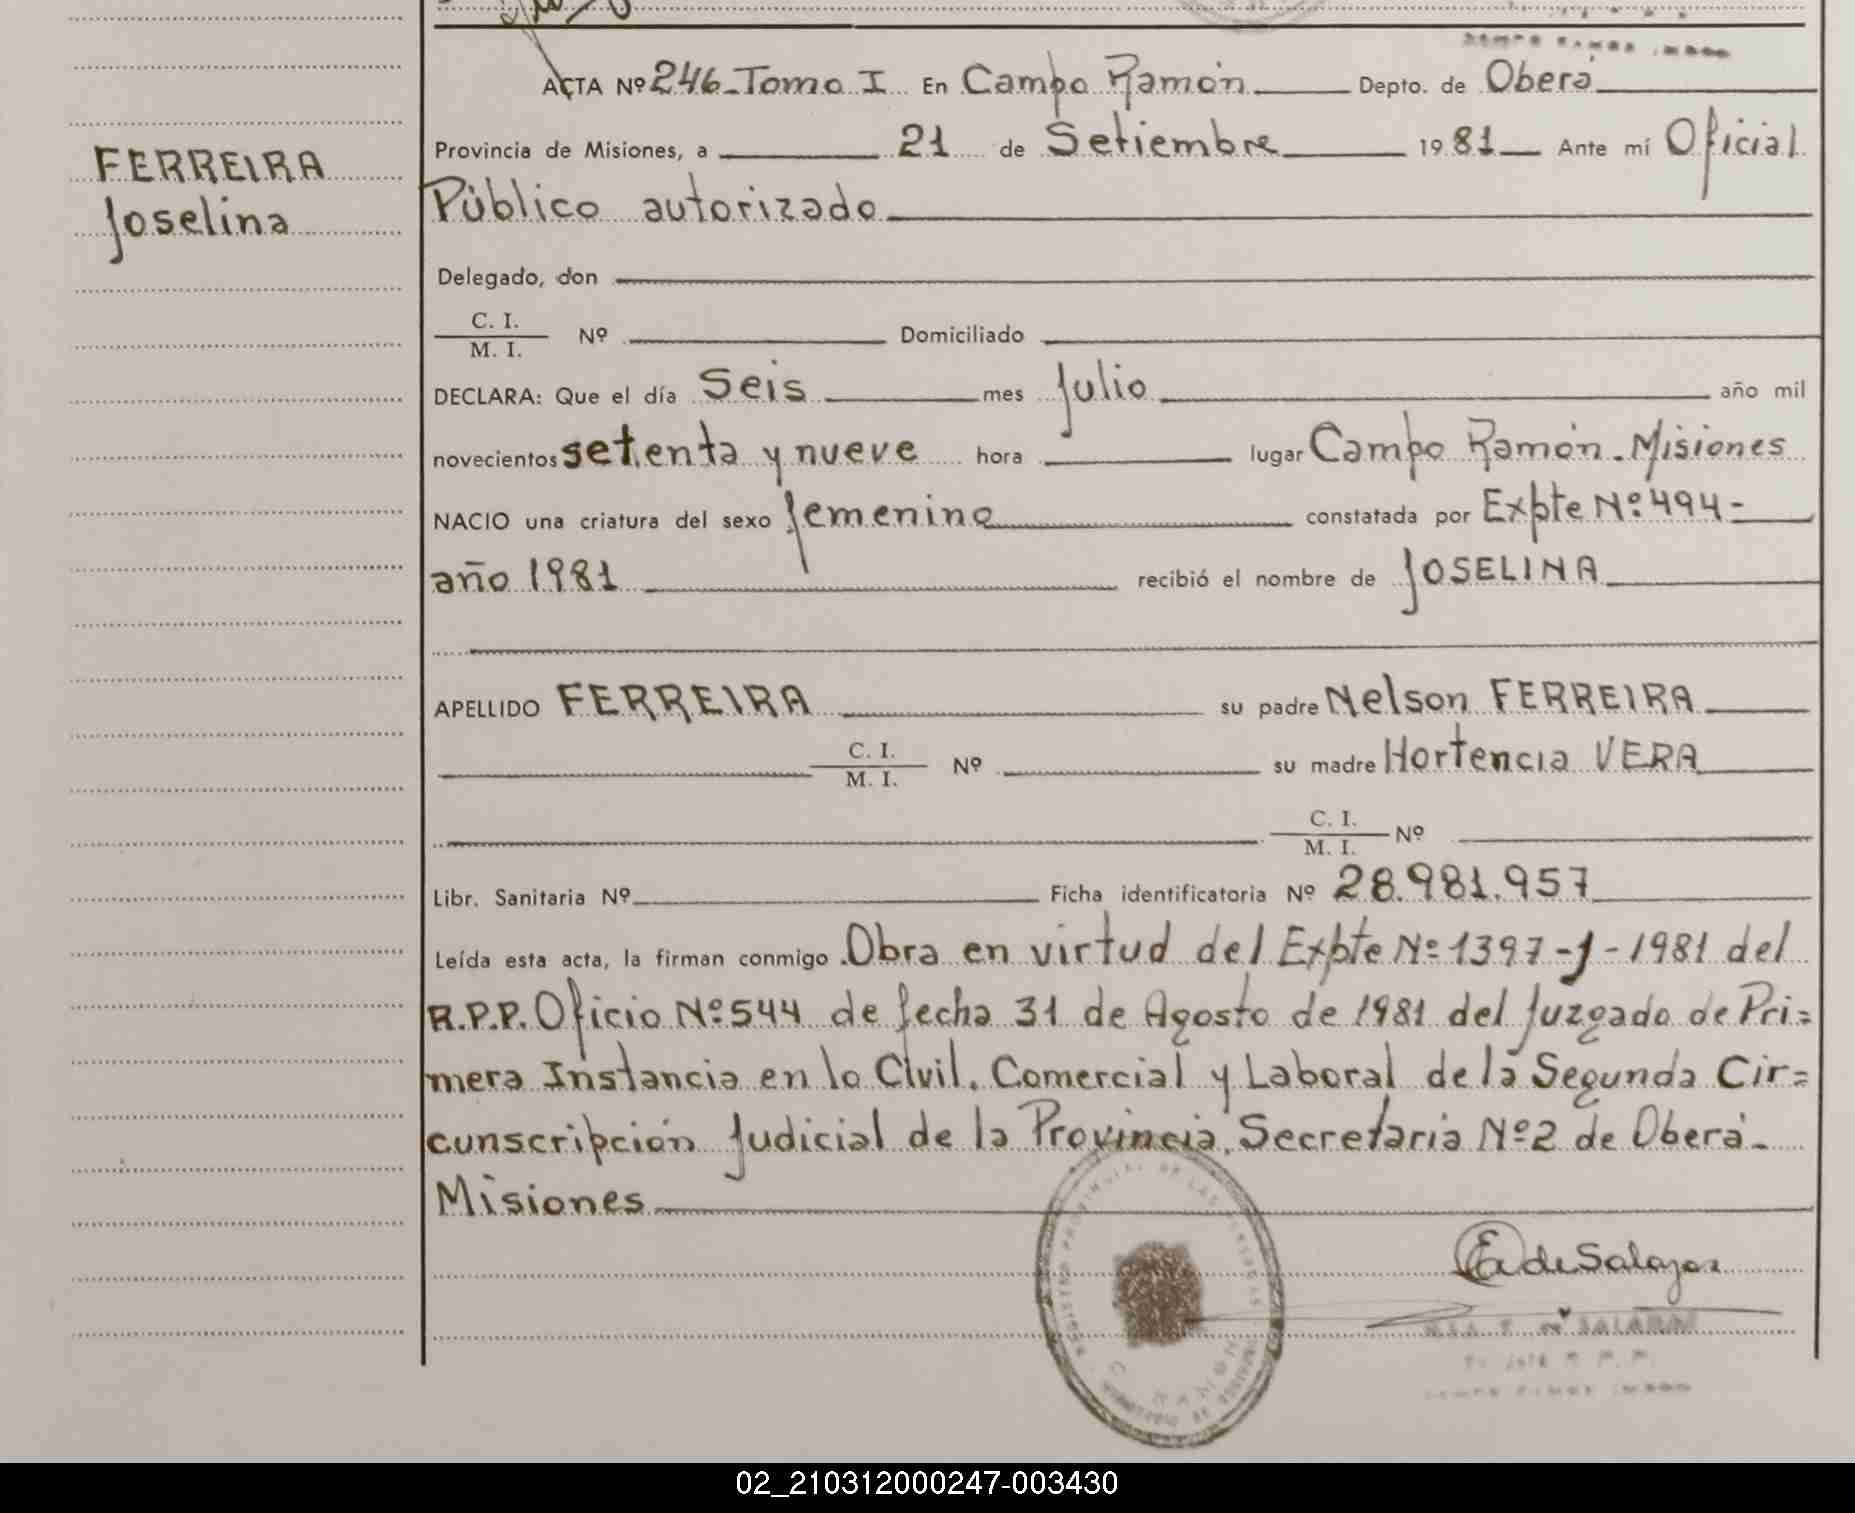 ACTA Nº 246 - Tomo I En Campo Ramón Depto. de Oberá
Provincia de Misiones, a 21 de Setiembre 1981 Ante mí Oficial
FERREIRA
Joselina
Público autorizado
Delegado, don
C. I.
M. I. Nº Domiciliado
DECLARA: Que el día Seis mes Julio año mil
novecientos setenta y nueve hora lugar Campo Ramón - Misiones
NACIO una criatura del sexo femenino constatada por Expte Nº 494 -
año 1981 recibió el nombre de JOSELINA
APELLIDO FERREIRA su padre Nelson FERREIRA
C. I.
M. I. Nº su madre Hortencia VERA
C. I.
M. I. Nº
Libr. Sanitaria Nº Ficha identificatoria Nº 28.981.957
Leída esta acta, la firman conmigo. Obra en virtud del Expte Nº 1397 - J - 1981 del
R.P.P. Oficio Nº 544 de fecha 31 de Agosto de 1981 del Juzgado de Pri=
mera Instancia en lo Civil, Comercial y Laboral de la Segunda Cir=
cunscripción Judicial de la Provincia, Secretaria Nº 2 de Oberá -
Misiones
E. de Salazar
02_210312000247-003430